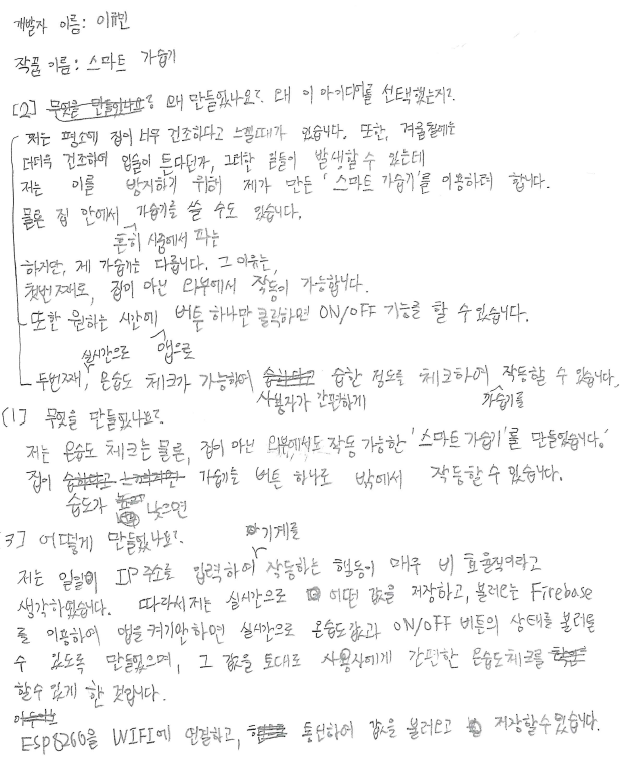 개발자 이름: 이규민
작품 이름: 스마트 가습기
[2] 무엇을 만들었나요? 왜 만들었나요? 왜 이 아이디어를 선택했는지?
저는 평소에 집이 너무 건조하다고 느낄때가 있습니다. 또한, 겨울철에는
더더욱 건조하여 입술이 튼다던가, 그러한 일들이 발생할 수 있는데
저는 이를 방지하기 위해 제가 만든 '스마트 가습기'를 이용하려 합니다.
물론 집 안에서 가습기를 쓸 수도 있습니다.
흔히 시중에서 파는
하지만, 제 가습기는 다릅니다. 그 이유는,
첫번째로, 집이 아닌 외부에서 작동이 가능합니다.
또한 원하는 시간에 버튼 하나만 클릭하면 ON/OFF 기능를 할 수 있습니다.
실시간으로 앱으로
두번째, 온습도 체크가 가능하여 습하다고 습한 정도를 체크하여 작동할 수 있습니다.
사용자가 간편하게 가습기를
[1] 무엇을 만들었나요?
저는 온습도 체크는 물론, 집이 아닌 외부에서도 작동 가능한 '스마트 가습기'를 만들었습니다.
집이 습하다고 느껴지면 가습기는 버튼 하나로 밖에서 작동할 수 있습니다.
습도가 낮으면
[3] 어떻게 만들었나요? 기계를
저는 일일이 IP주소로 입력하여 작동하는 행동이 매우 비 효율적이라고
생각하였습니다. 따라서 저는 실시간으로 어떤 값을 저장하고, 불러오는 Firebase
를 이용하여 앱을 켜기만하면 실시간으로 온습도값과 ON/OFF 버튼의 상태를 불러올
수 있도록 만들었으며, 그 값을 토대로 사용자에게 간편한 온습도체크를
할수 있게 한 것입니다.
ESP8266을 WIFI에 연결하고, 통신하여 값을 불러오고 저장할수있습니다.